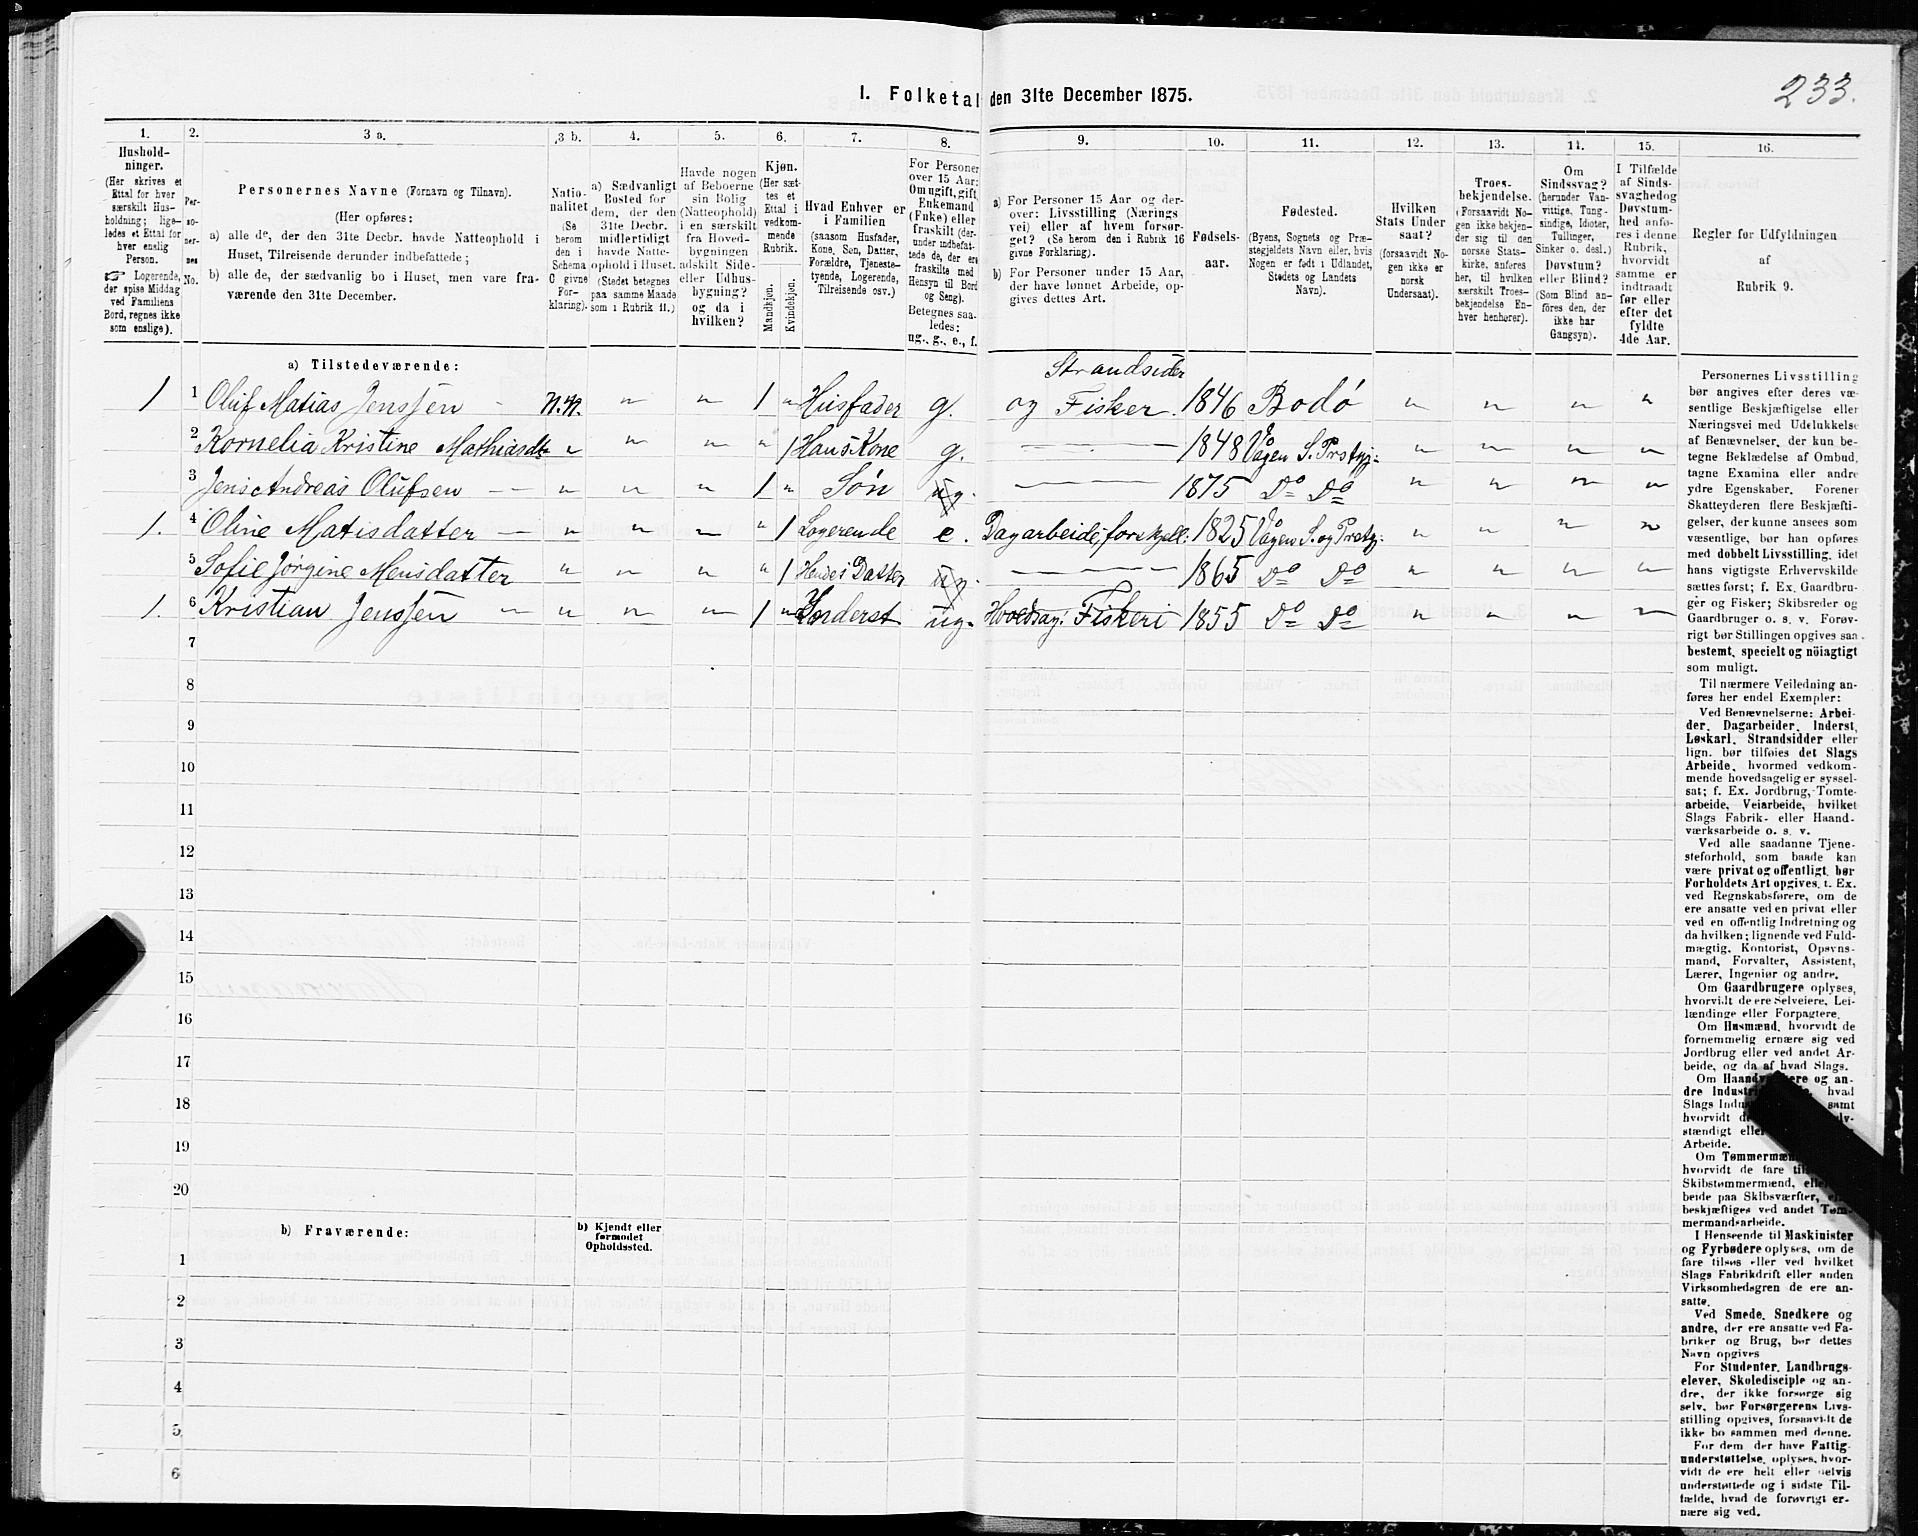 I. Folketal den 31te December 1875.
233.
1.
2.
3 a.
3 b.
4.
5.
6.
7.
8.
9.
10.
11.
12.
13.
14.
15.
16.
Hushold-
ninger.
(Her skrives et
Ettal for hver
særskilt Hus-
holdning; lige-
ledes et Ettal for
hver enslig
Person.
☞ Logerende,
der spise Middag
ved Familiens
Bord, regnes ikke
som enslige).
Per-
so-
ner-
nes
No.
Personernes Navne (Fornavn og Tilnavn).
(Her opføres:
a) alle de, der den 31te Decbr. havde Natteophold i
Huset, Tilreisende derunder indbefattede;
b) alle de, der sædvanlig bo i Huset, men vare fra-
værende den 31te December.
Natio-
nalitet
(Se
herom
den i
Schema
C givne
For-
klaring).
a) Sædvanligt
Bosted for
dem, der den
31te Decbr.
midlertidigt
havde Natte-
ophold i Huset.
(Stedet betegnes
paa samme Maade
som i Rubrik 11.)
Havde nogen
af Beboerne
sin Bolig
(Natteophold)
i en særskilt
fra Hoved-
bygningen
adskilt Side-
eller Udhus-
bygning?
og da i
hvilken?
Kjøn.
(Her sæt-
tes et
Ettal i
vedkom-
mende
Rubrik.
Mandkjøn.
Kvindekjøn.
Hvad Enhver er
i Familien
(saasom Husfader,
Kone, Søn, Datter,
Forældre, Tjeneste-
tyende, Logerende,
Tilreisende osv.)
For Personer
over 15 Aar:
Om ugift, gift,
Enkemand
(Enke) eller
fraskilt (der-
under indbefat-
tede de, der ere
fraskilte med
Hensyn til Bord
og Seng).
Betegnes saa-
ledes:
ug., g., e., f.
a) For Personer 15 Aar og der-
over: Livsstilling (Nærings
vei) eller af hvem forsør-
get? (Se herom den i Rubrik 16
givne Forklaring).
b) For Personer under 15 Aar,
der have lønnet Arbeide, op-
gives dettes Art.
Fødsels-
aar.
Fødested.
(Byens, Sognets og Præ-
stegjeldets Navn eller, hvis
Nogen er født i Udlandet,
Stedets og Landets
Navn).
Hvilken
Stats Under
saat?
(forsaavidt No-
gen ikke er
norsk
Undersaat).
Troes-
bekjendelse.
(Forsaavidt No-
gen ikke bekjen-
der sig til den
norske Stats-
kirke, anføres
her, til hvilken
særskilt Troes-
bekjendelse En-
hver henhører).
Om
Sindssvag?
(herunder Van-
vittige, Tung-
sindige, Idioter,
Tullinger,
Sinker o. desl.)
Døvstum?
eller Blind?
(Som Blind an-
føres den, der
ikke har
Gangsyn).
I Tilfælde
af Sinds-
svaghed og
Døvstum-
hed anfø-
res i denne
Rubrik,
hvorvidt
samme er
indtraadt
før eller
efter det
fyldte
4de Aar.
Regler for Udfyldningen
af
Rubrik 9.
a) Tilstedeværende:
Strandsider
1 1 Oluf Matias Jenssen - N.N. " " 1 " Husfader g. og Fisker. 1846 Bodø " " " "
2 Kornelia Kristine Mathiasdt " " " " 1 Hans Kone g. — 1848 Vågen S. Prstgj: " " " "
3 Jens Andreas Olufsen — " " " 1 " Søn ug. — 1875 Do Do " " " "
1. 4 Oline Matisdatter — " " " " 1 Logerende e. Dagarbeide, forskjell: 1825 Vågen S. og Prstgj: " " " "
5 Sofie Jørgine Mensdatter " " " " 1 Hendes Datter ug. — 1865 Do Do " " " "
1. 6 Kristian Jenssen — " " " 1 " Inderst ug. Hovedsag: Fiskeri 1855 Do Do " " " "
7
8
9
10
11
12
13
14
15
16
17
18
19
20
b) Fraværende:
b) Kjendt eller
formodet
Opholdssted.
1
2
3
4
5
6
Personernes Livsstilling
bør angives efter deres væ-
sentlige Beskjæftigelse eller
Næringsvei med Udelukkelse
af Benævnelser, der kun be-
tegne Beklædelse af Ombud,
tagne Examina eller andre
ydre Egenskaber. Forener
Skatteyderen flere Beskjæfti-
gelser, der kunne ansees som
væsentlige, bør han opføres
med dobbelt Livsstilling, idet
hans vigtigste Erhvervskilde
sættes først; f. Ex. Gaardbru-
ger og Fisker; Skibsreder og
Gaardbruger o. s. v. Forøv-
rigt bør Stillingen opgives saa
bestemt, specielt og nöiagtigt
som muligt.
Til nærmere Veiledning an-
føres her endel Exempler:
Ved Benævnelserne: Arbei-
der, Dagarbeider, Inderst,
Løskarl, Strandsidder eller
lign. bør tilføies det Slags
Arbeide, hvormed vedkom-
mende hovedsagelig er syssel-
sat; f. Ex. Jordbrug, Tomte-
arbeide, Veiarbeide, hvilket
Slags Fabrik- eller Haand-
værksarbeide o. s. v.
Ved alle saadanne Tjene-
steforhold, som baade kan
være privat og offentligt, bør
Forholdets Art opgives, t. Ex.
ved Regnskabsførere, om de
ere ansatte ved en privat eller
ved en offentlig Indretning og
da hvilken; lignende ved Fuld-
mægtig, Kontorist, Opsyns-
mand, Forvalter, Assistent,
Lærer, Ingeniør og andre.
Om Gaardbrugere oplyses,
hvorvidt de ere Selveiere, Lei-
lændinge eller Forpagtere.
Om Husmænd, hvorvidt de
fornemmelig ernære sig ved
Jordbrug eller ved andet Ar-
beide, og da af hvad Slags.
Om Haandv ere og an-
dre Industri , hvad
Slags Indu samt
hvorvidt d elv-
stændigt elle
Arbeide.
Om Tømmermæn
hvorvidt de fare til
Skibstømmermænd, elle
beide paa Skibsværfter, e
beskjæftiges ved andet Tøm-
mermandsarbeide.
I Henseende til Maskinister
og Fyrbødere oplyses, om de
fare tilsøs eller ved hvilket
Slags Fabrikdrift eller anden
Virksomhedsgren de ere an-
satte.
Ved Smede, Snedkere og
andre, der ere ansatte ved Fa-
briker og Brug, bør dettes
Navn opgives
For Studenter, Landbrugs-
elever, Skoledisciple og an-
dre, der ikke forsørge sig
selv, bør Forsørgerens Livs-
stilling opgives, forsaavidt de
ikke bo sammen med denne.
For dem, der have Fattig-
understøttelse, oplyses, hvor-
vidt de ere helt eller delvis
understøttede og i sidste Til-
fælde, hvad de forøvrigt er-
nære sig ved.